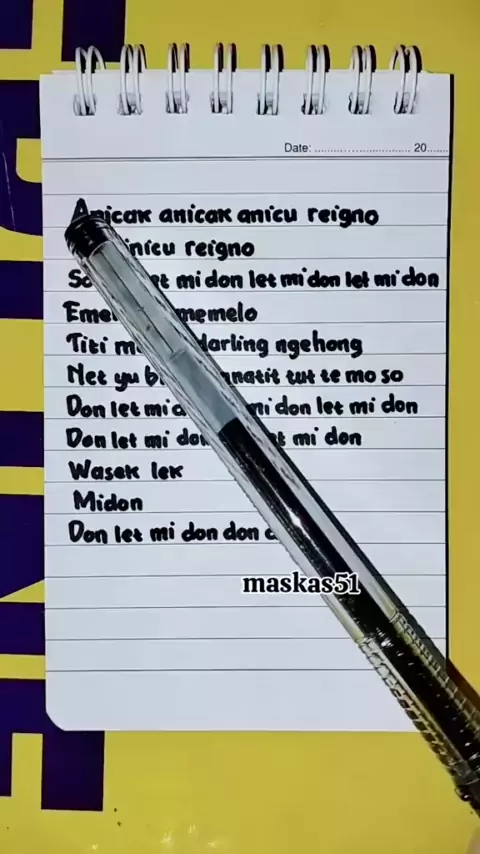 Date: ........................ 20......
anicak anicu reigno
reigno
mi don let mi don let mi don
memelo
Titi darling ngehong
Net yu tut te mo so
Don let mi mi don let mi don
Don let mi mi don
Wasek lek
Midon
Don let mi don don
maskas51